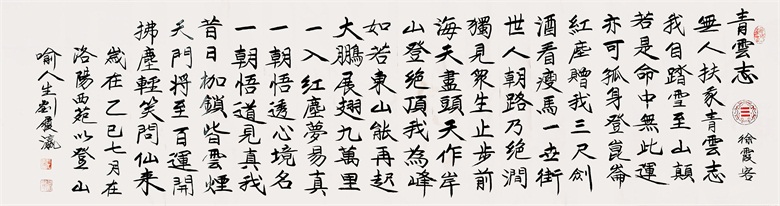 青雲志
徐霞客
無人扶象青雲志
我自踏雪至山巔
若是命中無此運
亦可孤身登崑崙
紅塵贈我三尺劍
酒看瘦馬一立街
世人朝路乃絕澗
獨見眾生止步前
海天盡頭天作岸
山登絕頂我為峰
如若東山能再起
大鵬展翅九萬里
一入紅塵夢易真
一朝悟透心境名
一朝悟道見真我
昔日枷鎖皆雲煙
天門將至百運開
拂塵輕笑問仙來
歲在乙巳七月在
洛陽西苑以登山
喻人生劉霞瀛